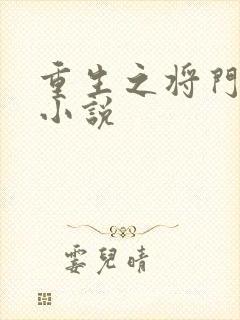 重生之将門
小説
霎兒晴